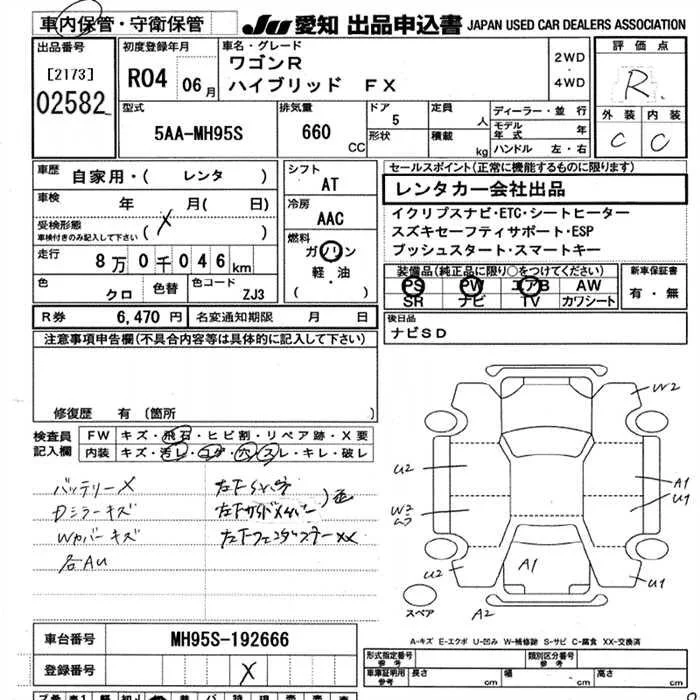 車内保管・守衛保管
JU 愛知 出品申込書 JAPAN USED CAR DEALERS ASSOCIATION
出品番号
[2173]
02582
初度登録年月
R04 06月
車名・グレード
ワゴンR
ハイブリッド FX
2WD
・
4WD
評価点
R
外装 内装
C C
型式
5AA-MH95S
排気量
660 CC
ドア 5
形状
定員 人
積載 kg
ディーラー・並行
モデル年式 年
ハンドル 左・右
車歴 自家用・( レンタ )
車検 年 月( 日)
受検形態
車検付きのみ記入して下さい ( X )
走行 8万0千046km
色 クロ 色替 色コード ZJ3
シフト
AT
冷房
AAC
燃料
ガソリン
軽・油
( )
セールスポイント(正常に機能するものに限ります)
レンタカー会社出品
イクリプスナビ・ETC・シートヒーター
スズキセーフティサポート・ESP
プッシュスタート・スマートキー
装備品(純正品に限り○をつけてください)
PS PW エアB AW
SR ナビ TV カワシート
新車保証書
有・無
R券 6,470円 名変通知期限 月 日
後日品
ナビSD
注意事項申告欄(不具合内容等は具体的に記入して下さい)
修復歴 有 〔箇所
検査員
記入欄
FW キズ・飛石・ヒビ割・リペア跡・X要
内装 キズ・汚レ・コゲ・穴・スレ・キレ・破レ
バッテリーX
Dミラーキズ
Wカバーキズ
各AU
W2
U2
A1
U1
W3
U2
A1
U1
A2
スペア
A-キズ E-エクボ U-凹み W-補修跡 S-サビ C-腐食 XX-交換済
車台番号 MH95S-192666
登録番号 X
形式指定番号
参考
類別区分番号
参考
車庫証明用
参考
長さ cm 幅 cm 高さ cm